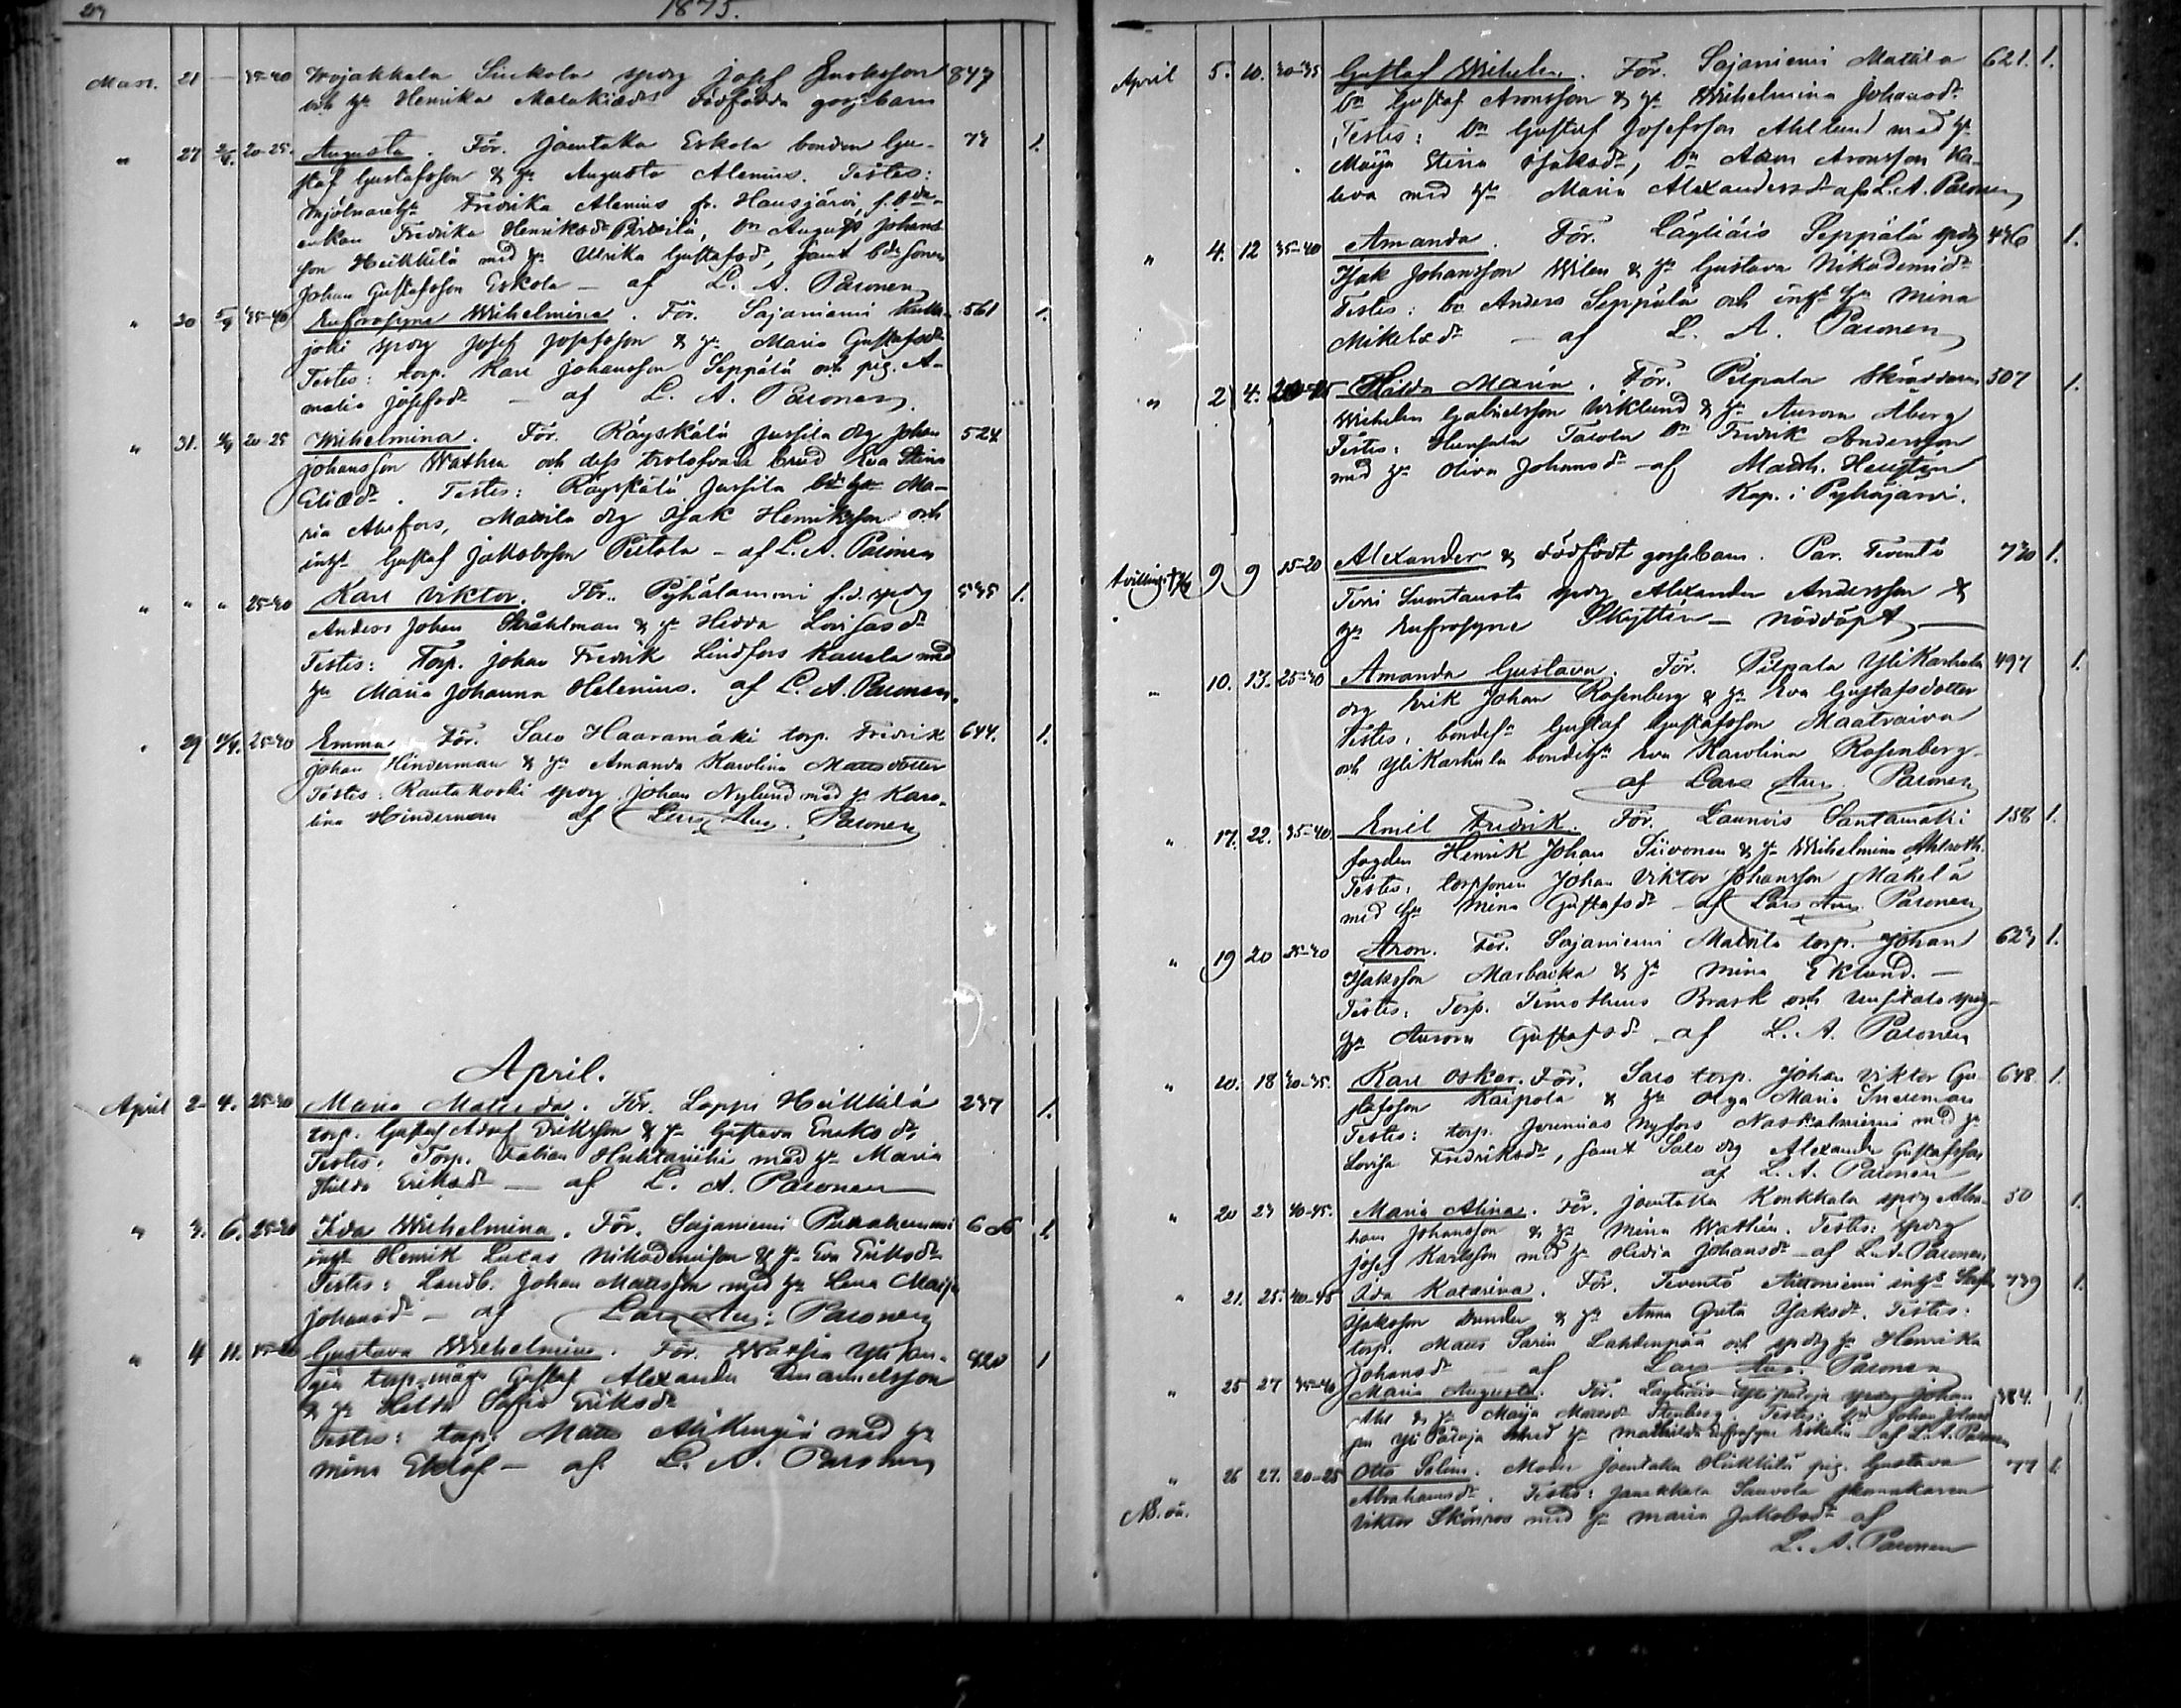 1875.
Mars. 21 — 35-40 Wojakkala Sinkola spdrg Josef Jakobsson 847
och h:u Henrika Malakiaedr dödfödda gossebarn
" 27 2/4. 20-25. Augusta. För. Joentaka Eskola bonden Gu- 73 1.
staf Gustafsson & h:u Augusta Alenius. Testes:
mjölnareh:u Fredrika Alenius fr. Hausjärvi, f. b:de
enkan Fredrika Henriksdr Pirttilä, bn August Johans
son Heikkilä med h:u Ulrika Gustafsdr, samt bde sonen
Johan Gustafsson Eskola — af L. A. Paronen
" 30 5/4 35-40 Eufrosyne Wilhelmina. För. Sajaniemi 561 1.
joki spdrg Josef Josefsson & h:u Maria Gustafsdr
Testes: torp. Karl Johansson Seppälä och pig. A-
malia Josefsdr — af L. A. Paronen
" 31. 4/4 20-25 Wilhelmina. För. Räyskälä Jussila drg Johan 524
Johansson Wathen och dess trolofvade brud Eva Stina
Eliaedr. Testes: Räyskälä Jussila bde h:u Ma-
ria Ahlfors, Mattila drg Isak Henriksson och
inhs Gustaf Jakobsson Pietola — af L. A. Paronen
" " " 25-30 Karl Viktor. För. Pyhälammi f.d. spdrg 535 1.
Anders Johan Stråhlman & h:u Hedda Lovisasdr
Testes: Torp. Johan Fredrik Lindfors Kaucla med
h:u Maria Johanna Helenius. af L. A. Paronen.
" 29 11/4. 25-30 Emma. För. Salo Haaramäki torp. Fredrik 644. 1.
Johan Hinderman & h:u Amanda Karolina Mattsdotter
Testes: Rautakoski spdrg Johan Nylund med h:u Karo-
lina Hinderman af Lars Aug. Paronen
April.
April 2 4. 25-30 Maria Matilda. För. Loppi Heikkilä 237 1.
torp. Gustaf Adolf Eriksson & h:u Gustava Enoksdr.
Testes: Torp. Fabian Huhtamäki med h:u Maria
Hilda Eriksdr — af L. A. Paronen
" 3. 6. 25-30 Ida Wilhelmina. För. Sajaniemi 606 1.
inhs Henrik Lukas Nikodemusson & h:u Eva Eriksdr
Testes: Landb. Johan Mattsson med h:u Lena Maija
Johansdr — af Lars Aug. Paronen
" 4 11. Gustava Wilhelmina. För. Yli Ken- 420 1
giä torp. måge Gustaf Alexander Emanuelsson
& h:u Hilda Sofia Eriksdr
Testes: torp. Matts Alikengiä med h:u
Mina Eklöf — af L. A. Paronen
April 5. 10. 30-35 Gustaf Wilhelm. För. Sajaniemi Mattila 621. 1.
bn Gustaf Aronsson & h:u Wilhelmina Johansdr
Testes: bn Gustaf Josefsson Ahllund med h:u
Maija Stina Isaksdr, bn Aron Aronsson Ka-
leva med h:u Maria Alexandersdr af L. A. Paronen
" 4. 12 35-40 Amanda. För. Läyliäis Seppälä spdrg 436 1.
Isak Johansson Wilen & h:u Gustava Nikodemidr
Testes: bn Anders Seppälä och inhs h:u Mina
Mikelsdr — af L. A. Paronen
" 2 4. Hilda Maria. För. Pilpala skräddaren 507 1.
Wilhelm Gabrielsson Wiklund & h:u Aurora Åberg
Testes: Hunsala Tavola bn Fredrik Andersson
med h:u Oliva Johansdr — af Math. Heugtén
Kap. i Pyhäjärvi.
tvilling 9 9 15-20 Alexander & dödfödt gossebarn. Par. Teventö 730 1.
Terri Suontausta spdrg Alexander Andersson &
h:u Eufrosyne Skyttén — nöddöpt —
" 10. 13. 25-30 Amanda Gustava. För. Pilpala Ylikarhula 497 1.
drg Erik Johan Rosenberg & h:u Eva Gustafsdotter
Testes: bondes:n Gustaf Gustafsson Maatvaiva
och Ylikarhula bondeh:u Eva Karolina Rosenberg
af Lars Aug. Paronen
" 17. 22. 35-40. Emil Fredrik. För. Launois Santamäki 158 1.
fogden Henrik Johan Siivonen & h:u Wilhelmina Ahlroth.
Testes: torpsonen Johan Viktor Johansson Mäkelä
med h:u Mina Gustafsdr — af Lars Aug. Paronen
" 19 20 25-30 Aron. För. Sajaniemi Mattila torp. Johan 623 1.
Isaksson Marbacka & h:u Mina Eklund. —
Testes: Torp. Timotheus Brask och Uusitalo spdrg
h:u Aurora Gustafsdr — af L. A. Paronen
" 10. 18 30-35. Karl Oskar. För. Salo torp. Johan Viktor Gu- 648 1.
stafsson Kaipola & h:u Olga Maria Inderman
Testes: torp. Jeremias Nyfors Naskalmiemi med h:u
Lovisa Fredriksdr, samt Salo drg Alexander Gustafsson
af L. A. Paronen
" 20 23 40-45. Maria Alina. För. Joentaka Konkkala spdrg Abra- 50 1.
ham Johansson & h:u Mina Wathén. Testes: spdrg
Josef Karlsson med h:u Hedda Johansdr — af L. A. Paronen
" 21. 25. 40-45 Ida Katarina. För. Teventö inhs 739 1.
Isaksson Dunder & h:u Anna Greta Isaksdr. Testes:
torp. Matts Sarin Lahdenpää och spdrg h:u Henrika
Johansdr — af Lars Aug. Paronen
" 25 27 35-40 Maria Augusta. För. Läyliäis spdrg Johan 384. 1.
Ahl & h:u Maija Mattsdr Stenberg. Testes: bn Johan Johans
son Yli Paloja med h:u Mathilda Eufrosyne — af L. A. Paronen
" 26 27. 20-25 Otto Selim. Moder Joentaka Heikkilä pig. Gustava 77 1.
Abrahamsdr. Testes: Janakkala Sauvola skomakaren
Viktor Skönros med h:u Maria Jakobsdr af
L. A. Paronen